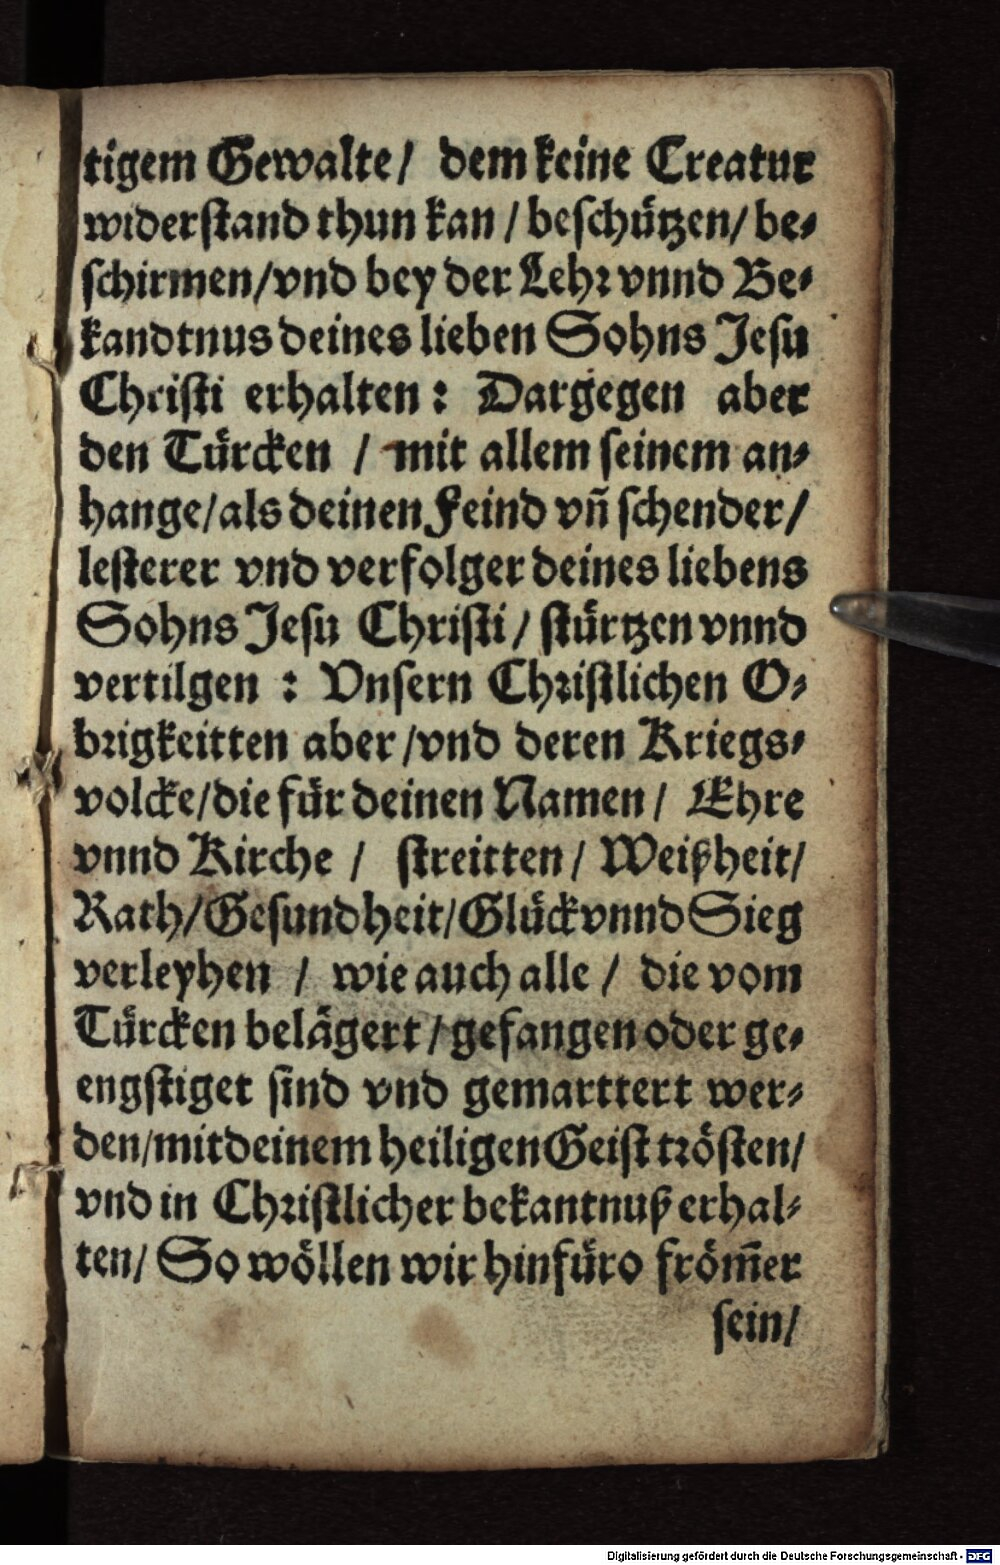 tigem Gewalte/ dem keine Creatur
widerstand thun kan / beschützen/ be⸗
schirmen/vnd bey der Lehr vnnd Be⸗
kandtnus deines lieben Sohns Jesu
Christi erhalten: Dargegen aber
den Türcken / mit allem seinem an⸗
hange/als deinen Feind vñ schender/
lesterer vnd verfolger deines liebens
Sohns Jesu Christi/ stürtzen vnnd
vertilgen : Vnsern Christlichen O⸗
brigkeitten aber/vnd deren Kriegs⸗
volcke/die für deinen Namen/ Ehre
vnnd Kirche / streitten/ Weißheit/
Rath/Gesundheit/Glück vnnd Sieg
verleyhen / wie auch alle / die vom
Türcken belägert/gefangen oder ge⸗
engstiget sind vnd gemarttert wer⸗
den/mit deinem heiligen Geist trösten/
vnd in Christlicher bekantnuß erhal⸗
ten/ So wöllen wir hinfüro from̄er
sein/
Digitalisierung gefördert durch die Deutsche Forschungsgemeinschaft - DFG